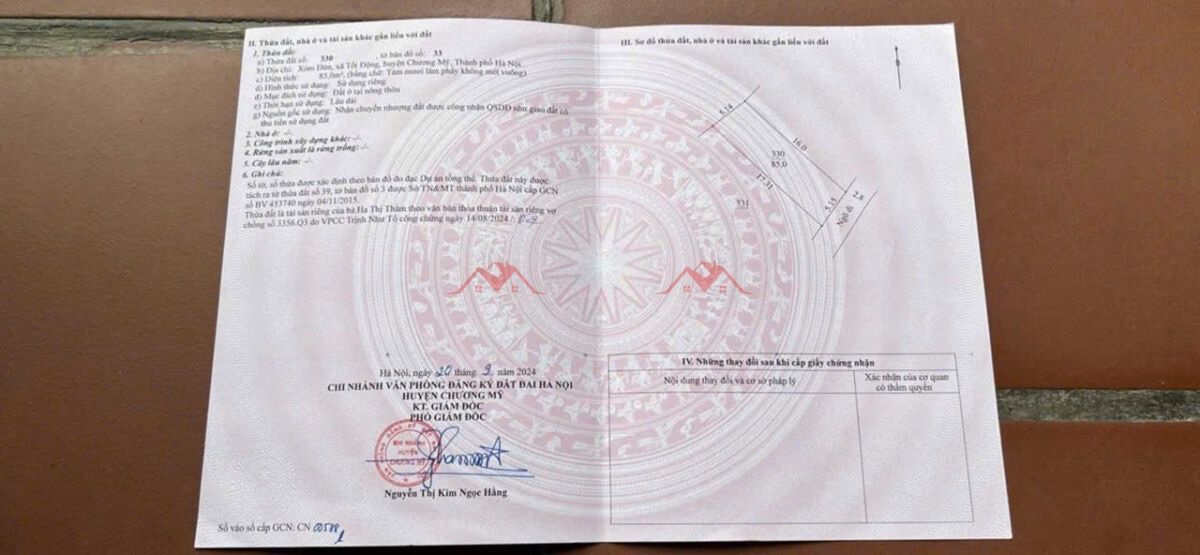 II. Thửa đất, nhà ở và tài sản khác gắn liền với đất
1. Thửa đất:
a) Thửa đất số: 330 tờ bản đồ số: 33
b) Địa chỉ: Xóm Đừn, xã Tốt Động, huyện Chương Mỹ, Thành phố Hà Nội
c) Diện tích: 85,0m², (bằng chữ: Tám mươi lăm phẩy không mét vuông)
d) Hình thức sử dụng: Sử dụng riêng
đ) Mục đích sử dụng: Đất ở tại nông thôn
e) Thời hạn sử dụng: Lâu dài
g) Nguồn gốc sử dụng: Nhận chuyển nhượng đất được công nhận QSDĐ như giao đất có
thu tiền sử dụng đất
2. Nhà ở: -/-
3. Công trình xây dựng khác: -/-
4. Rừng sản xuất là rừng trồng: -/-
5. Cây lâu năm: -/-
6. Ghi chú:
Số tờ, số thửa được xác định theo bản đồ đo đạc Dự án tổng thể. Thửa đất này được
tách ra từ thửa đất số 39, tờ bản đồ số 3 được Sở TN&MT thành phố Hà Nội cấp GCN
số BV 453740 ngày 04/11/2015.
Thửa đất là tài sản riêng của bà Hạ Thị Thắm theo văn bản thỏa thuận tài sản riêng vợ
chồng số 3356.Q3 do VPCC Trịnh Như Tố công chứng ngày 14/08/2024./.
Hà Nội, ngày 20 tháng 9 năm 2024
CHI NHÁNH VĂN PHÒNG ĐĂNG KÝ ĐẤT ĐAI HÀ NỘI
HUYỆN CHƯƠNG MỸ
KT. GIÁM ĐỐC
PHÓ GIÁM ĐỐC
CHI NHÁNH
HUYỆN
CHƯƠNG MỸ
Nguyễn Thị Kim Ngọc Hằng
Số vào sổ cấp GCN: CN
III. Sơ đồ thửa đất, nhà ở và tài sản khác gắn liền với đất
5.14
16.0
330
85.0
17.31
331
2.8
5.15
Ngõ đi
IV. Những thay đổi sau khi cấp giấy chứng nhận
Nội dung thay đổi và cơ sở pháp lý
Xác nhận của cơ quan
có thẩm quyền